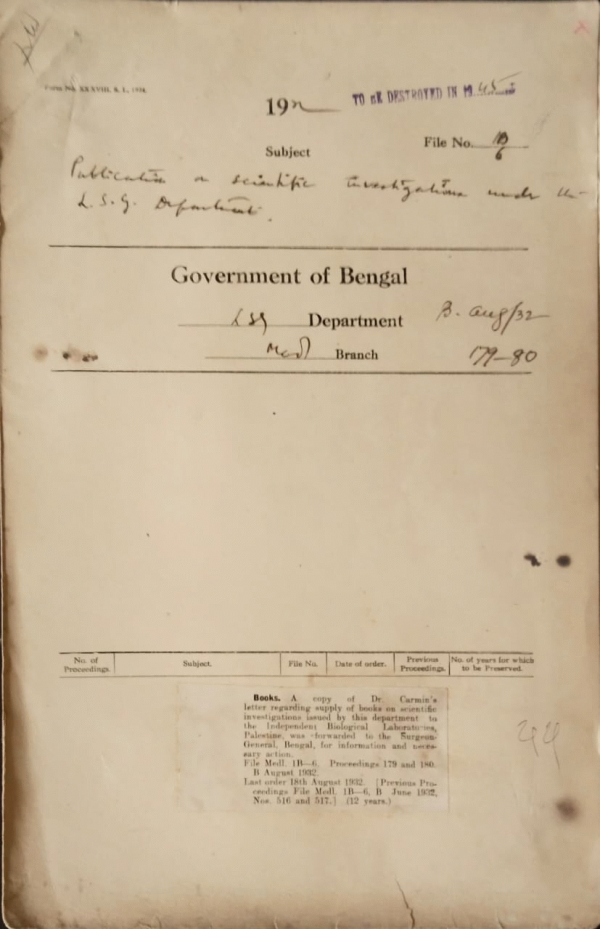 Form No. XXXVIII, S. L., 1924.
TO BE DESTROYED IN 1945
19
File No. 1B/6
Subject
Publication on scientific investigations under the
L.S.G. Department.
Government of Bengal
LSG Department
B. Aug/32
Medl Branch
179-80
No. of Proceedings. Subject. File No. Date of order. Previous Proceedings. No. of years for which to be Preserved.
Books. A copy of Dr. Carmin's
letter regarding supply of books on scientific
investigations issued by this department to
the Independent Biological Laboratories,
Palestine, was forwarded to the Surgeon-
General, Bengal, for information and neces-
sary action.
File Medl. 1B—6. Proceedings 179 and 180.
B August 1932.
Last order 18th August 1932. [Previous Pro-
ceedings File Medl. 1B—6, B June 1932,
Nos. 516 and 517.] (12 years.)